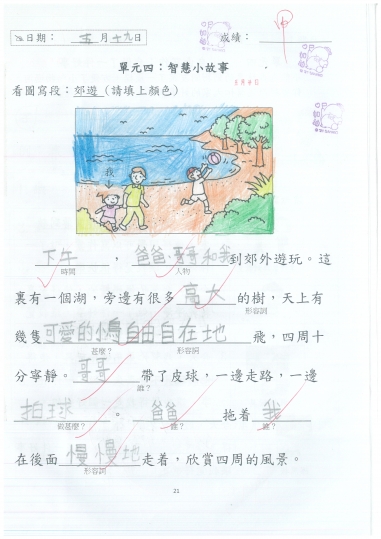 日期：五月十九日 成績：
單元四：智慧小故事
看圖寫段：郊遊(請填上顏色)
我
下午，爸爸、哥哥和我到郊外遊玩。這
時間 人物
裏有一個湖，旁邊有很多高大的樹，天上有
形容詞
幾隻可愛的小鳥自由自在地飛，四周十
甚麼？ 形容詞
分寧靜。哥哥帶了皮球，一邊走路，一邊
誰？
拍球。爸爸拖着我
做甚麼？ 誰？ 誰？
在後面慢慢地走着，欣賞四周的風景。
形容詞
21